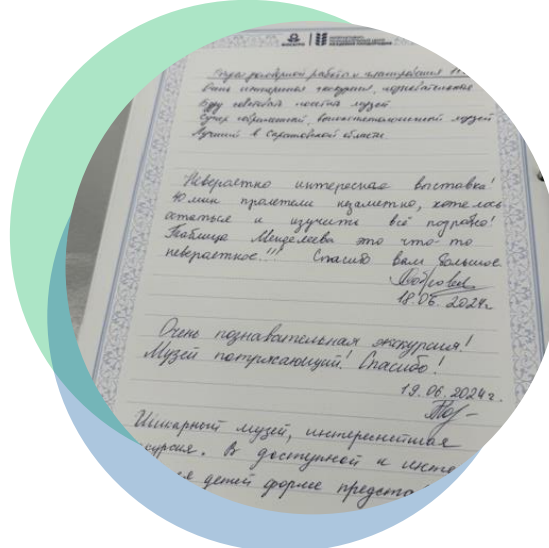 Очень интересная экскурсия, познавательная
Буду советовать посетить музей
Супер современный, высокотехнологичный музей
Лучший в Саратовской области
Невероятно интересная выставка!
40 мин пролетели незаметно, хотелось
остаться и изучить всё подробно!
Таблица Менделеева это что-то
невероятное!!! Спасибо вам большое
18.06.2024г.
Очень познавательная экскурсия!
Музей потрясающий! Спасибо!
19.06.2024г.
Шикарный музей, интереснейшая
В доступной и
детей форме